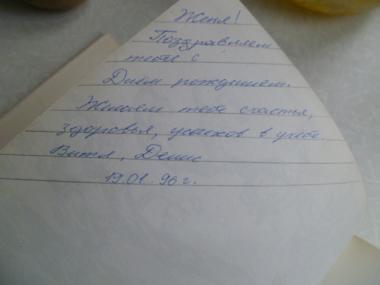 Женя!
Поздравляем
тебя с
Днём рождением.
Желаем тебе счастья,
здоровья, успехов в учёбе.
Витя, Денис
19.01.96 г.